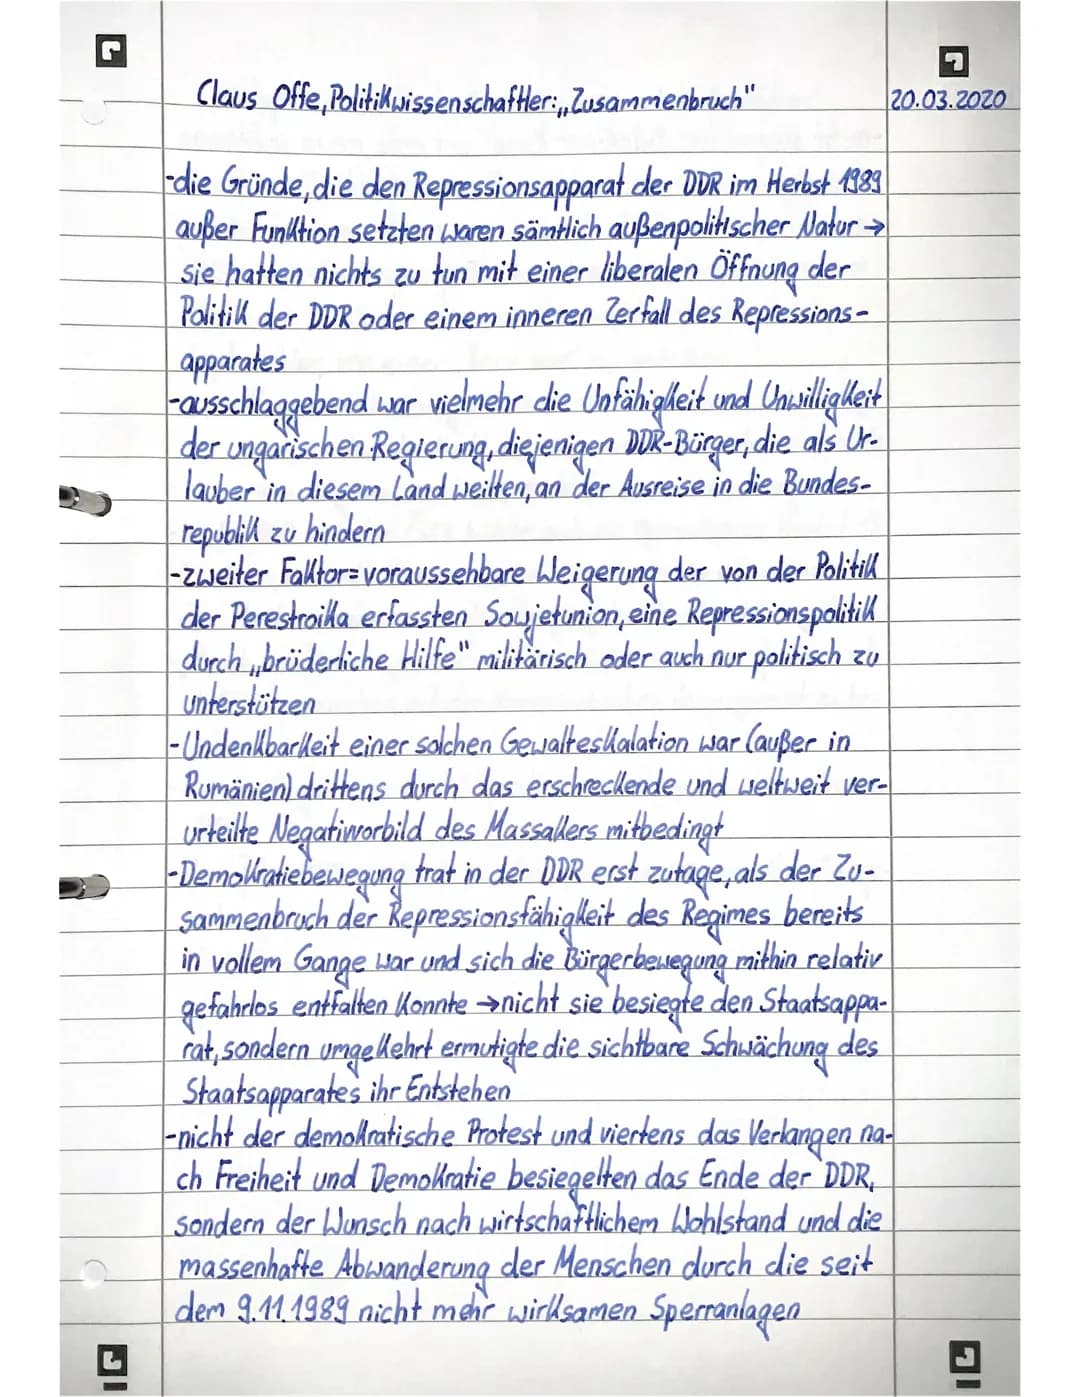 Claus Offe, Politikwissenschaftler: „Zusammenbruch"
20.03.2020
-die Gründe, die den Repressionsapparat der DDR im Herbst 1989
außer Funktion setzten waren sämtlich außenpolitischer Natur →
sie hatten nichts zu tun mit einer liberalen Öffnung der
Politik der DDR oder einem inneren Zerfall des Repressions-
apparates
-ausschlaggebend war vielmehr die Unfähigkeit und Unwilligkeit
der ungarischen Regierung, diejenigen DDR-Bürger, die als Ur-
lauber in diesem Land weilten, an der Ausreise in die Bundes-
republik zu hindern
-zweiter Faktor= voraussehbare Weigerung der von der Politik
der Perestroika erfassten Sowjetunion, eine Repressionspolitik
durch „brüderliche Hilfe" militärisch oder auch nur politisch zu
unterstützen
-Undenkbarkeit einer solchen Gewalteskalation war (außer in
Rumänien) drittens durch das erschreckende und weltweit ver-
urteilte Negativvorbild des Massakers mitbedingt
-Demokratiebewegung trat in der DDR erst zutage, als der Zu-
sammenbruch der Repressionsfähigkeit des Regimes bereits
in vollem Gange war und sich die Bürgerbewegung mithin relativ
gefahrlos entfalten konnte → nicht sie besiegte den Staatsappa-
rat, sondern umgekehrt ermutigte die sichtbare Schwächung des
Staatsapparates ihr Entstehen
-nicht der demokratische Protest und viertens das Verlangen na-
ch Freiheit und Demokratie besiegelten das Ende der DDR,
sondern der Wunsch nach wirtschaftlichem Wohlstand und die
massenhafte Abwanderung der Menschen durch die seit
dem 9.11.1989 nicht mehr wirksamen Sperranlagen